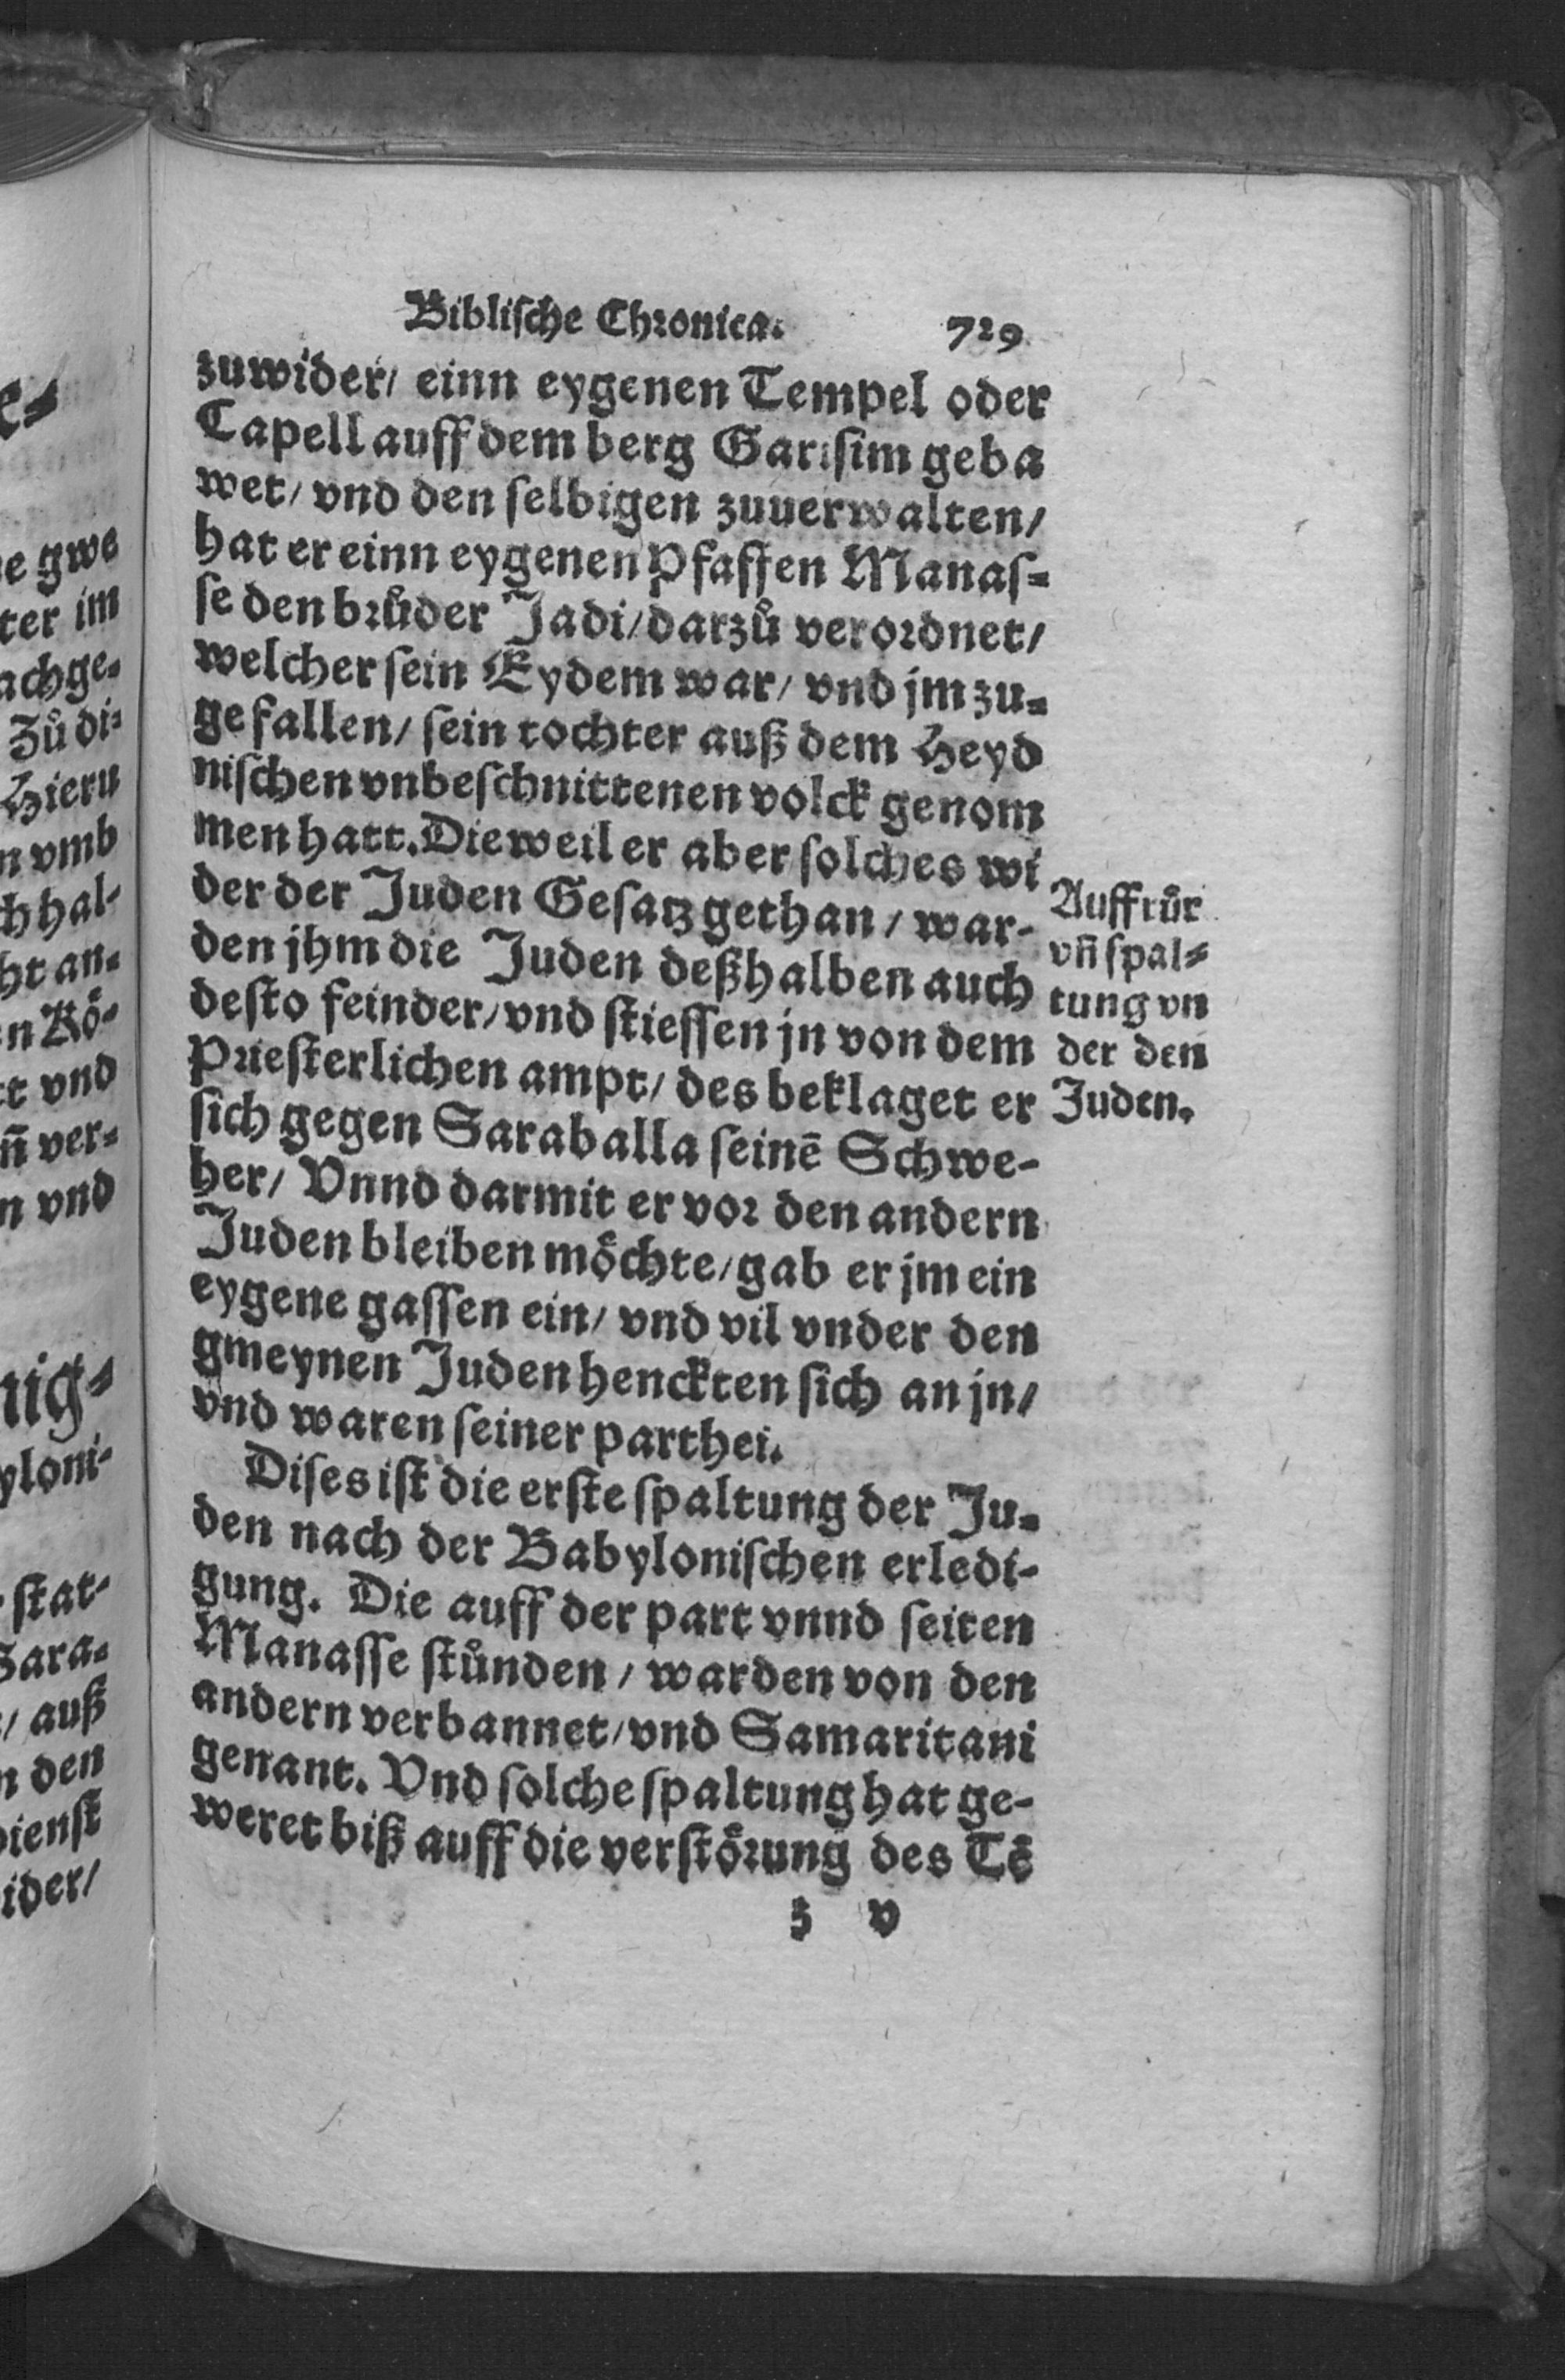 Biblische Chronica. 729
zuwider/ einn eygenen Tempel oder
Capell auff dem berg Garisim geba
wet/ vnd den selbigen zuuerwalten/
hat er einn eygenen Pfaffen Manas⸗
se den brůder Jadi/ darzů verordnet/
welcher sein Eydem war/ vnd jm zu⸗
gefallen/ sein tochter auß dem Heyd
nischen vnbeschnittenen volck genom
men hatt. Dieweil er aber solches wi
der der Juden Gesatz gethan / war-
den jhm die Juden deßhalben auch
desto feinder/ vnd stiessen jn von dem
Priesterlichen ampt/ des beklaget er
sich gegen Saraballa seinē Schwe-
her/ Vnnd darmit er vor den andern
Juden bleiben moͤchte/ gab er jm ein
eygene gassen ein/ vnd vil vnder den
gmeynen Juden henckten sich an jn/
vnd waren seiner parthei.
Dises ist die erste spaltung der Ju⸗
den nach der Babylonischen erledi-
gung. Die auff der part vnnd seiten
Manasse stůnden / warden von den
andern verbannet/ vnd Samaritani
genant. Vnd solche spaltung hat ge-
weret biß auff die verstoͤrung des Tē
z v
Auffrůr
vñ spal⸗
tung vn
der den
Juden.
e⸗
e gwe
ter im
achge⸗
Zů di⸗
Hieru
n vmb
ch hal-
ht an⸗
n Koͤ-
tt vnd
ñ ver⸗
n vnd
nig⸗
yloni-
stat-
Sara⸗
/ auß
n den
dienst
ider/